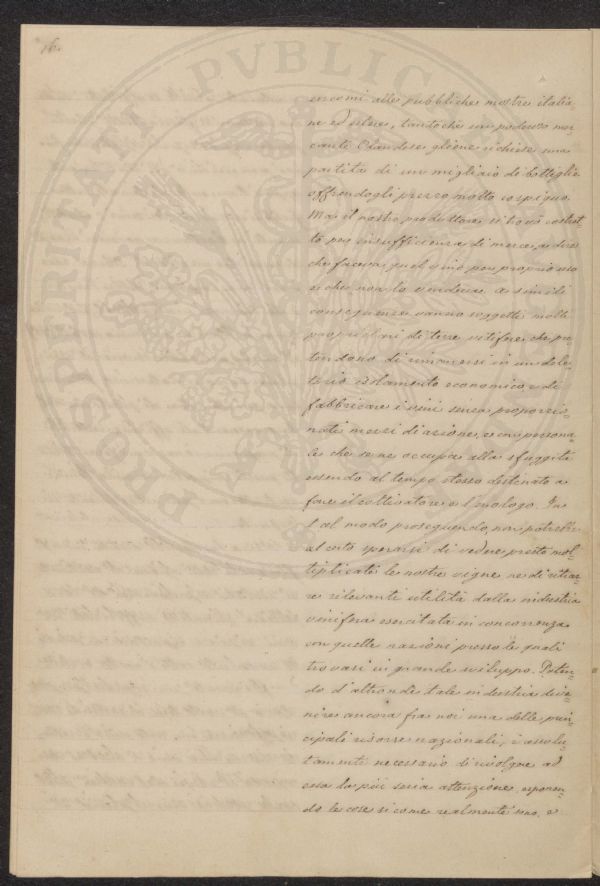 16.
PROSPERITATI PVBLICAE
encomi alle pubbliche mostre italia=
ne ed estere, tantochè un poderoso mer=
cante Olandese gliene richiese una
partita di un migliaio di bottiglie
offrendogli prezzo molto cospicuo.
Ma il nostro produttore si trovò costret=
to per insufficienza di merce, a dire
che faceva quel vino per proprio uso
e che non lo vendeva. A simili
conseguenze vanno soggetti molti
proprietari di terre vitifere, che pre=
tendono di rimanersi in un dele=
terio isolamento economico e di
fabbricare i vini senza proporzio=
nati mezzi di azione, e con persona=
le che se ne occupa alla sfuggita
essendo al tempo stesso destinato a
fare il coltivatore e l'enologo. In
tal modo proseguendo, non potrebbe
al certo sperarsi di vedere presto mol=
tiplicate le nostre vigne ne di ritrar=
re rilevanti utilità dalla industria
vinifera esercitata in concorrenza
con quelle nazioni presso le quali
trovasi in grande sviluppo. Poten=
do d'altronde tale industria dive=
nire ancora fra noi una delle prin=
cipali risorse nazionali, è assolu=
tamente necessario di rivolgere ad
essa la più seria attenzione, esponen=
do le cose siccome realmente sono, e